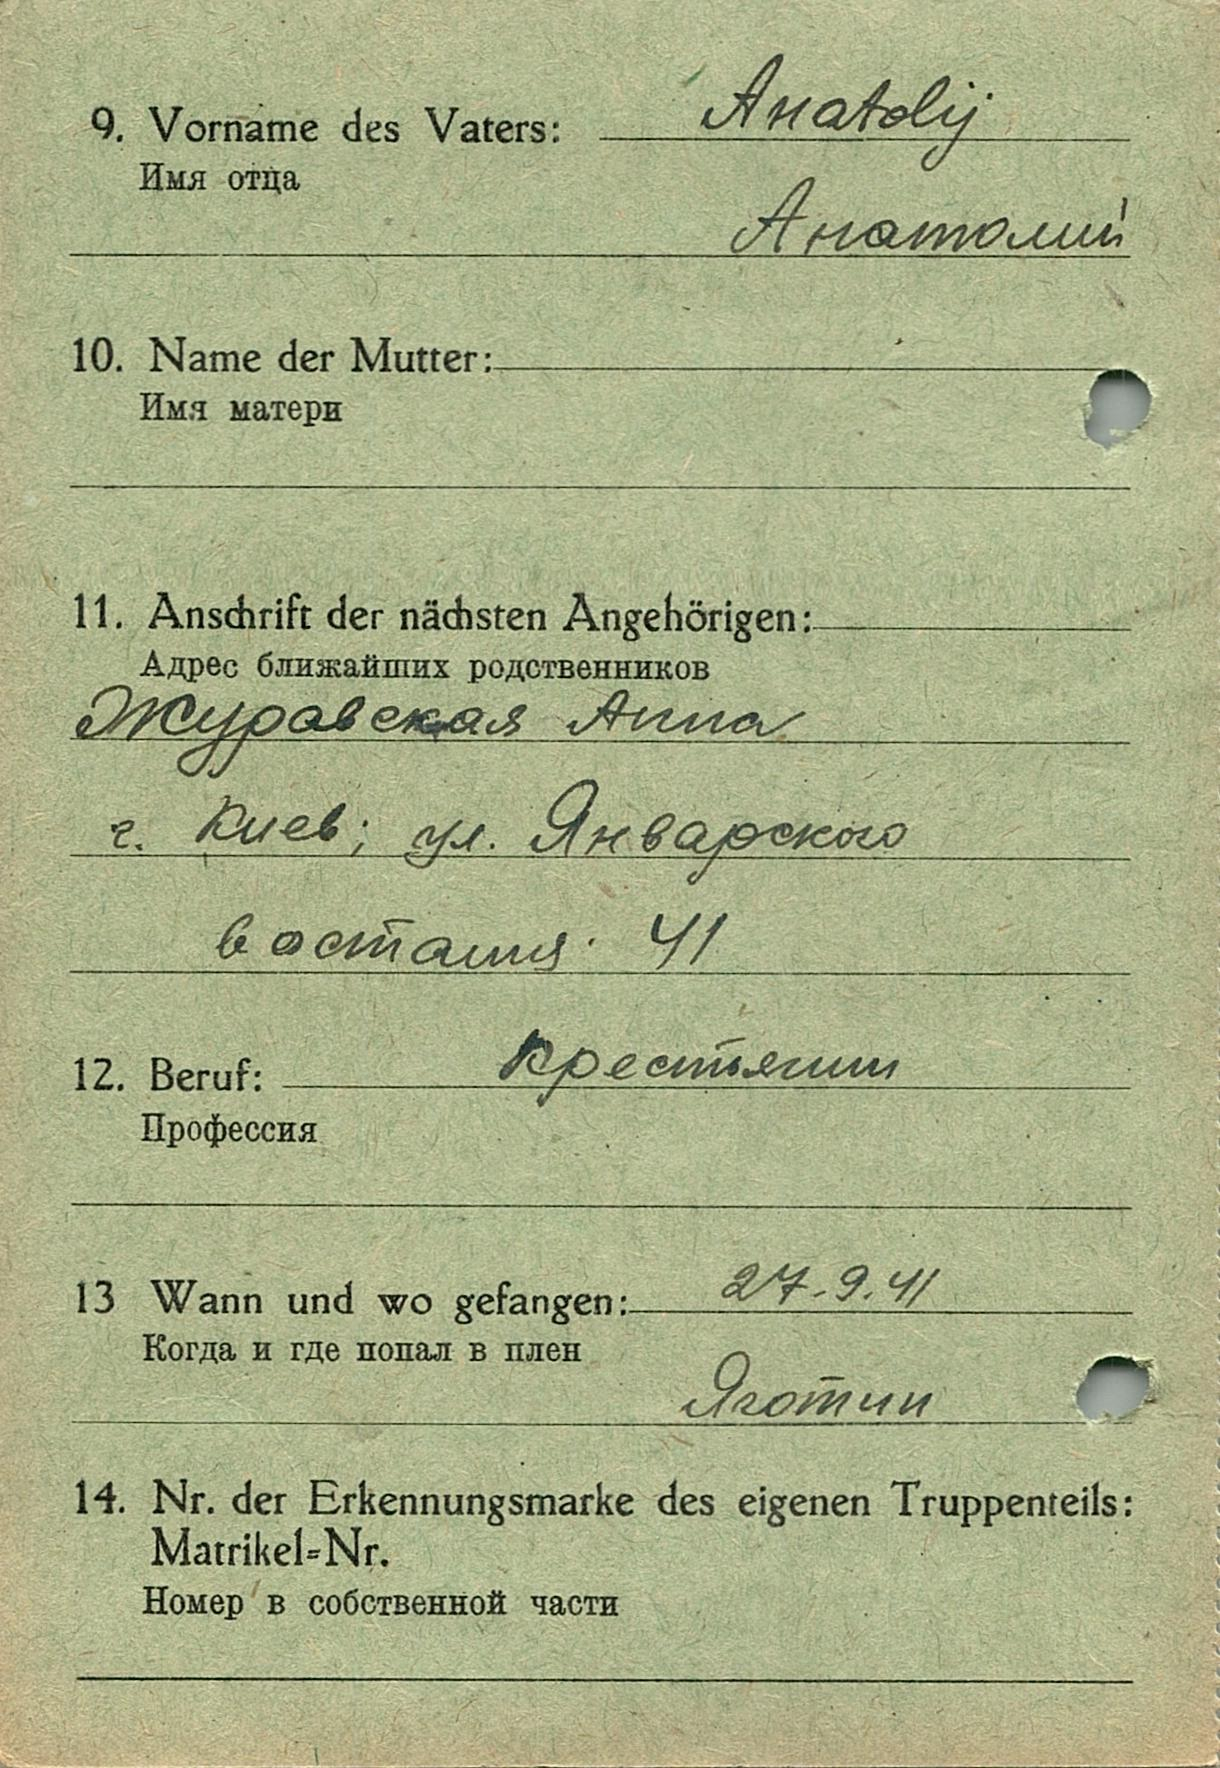 9. Vorname des Vaters: Anatolij
Имя отца
Анатолий
10. Name der Mutter:
Имя матери
11. Anschrift der nächsten Angehörigen:
Адрес ближайших родственников
Журавская Анна
г. Киев; ул. Январского
востания. 41
12. Beruf: крестьянин
Профессия
13 Wann und wo gefangen: 27.9.41
Когда и где попал в плен
Яготин
14. Nr. der Erkennungsmarke des eigenen Truppenteils:
Matrikel=Nr.
Номер в собственной части